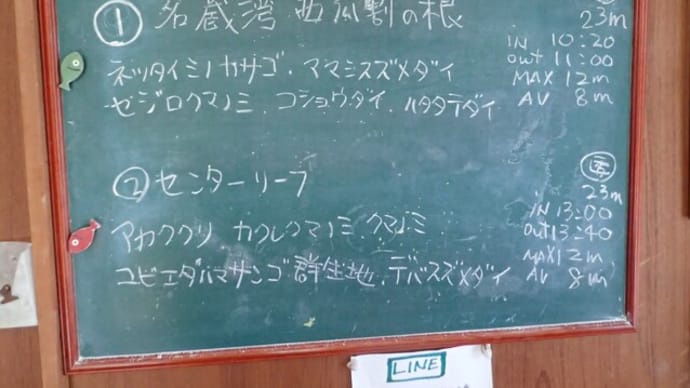 ① 名蔵湾 西瓜割の根
23m
IN 10:20
out 11:00
MAX 12m
AV 8m
ネッタイミノカサゴ、ママミスズメダイ
セジロクマノミ、コショウダイ、ハタタテダイ
② センターリーフ
23m
IN 13:00
out 13:40
MAX 12m
AV 8m
アカククリ カクレクマノミ クマノミ
ユビエダハマサンゴ群生地、デバスズメダイ
LINE